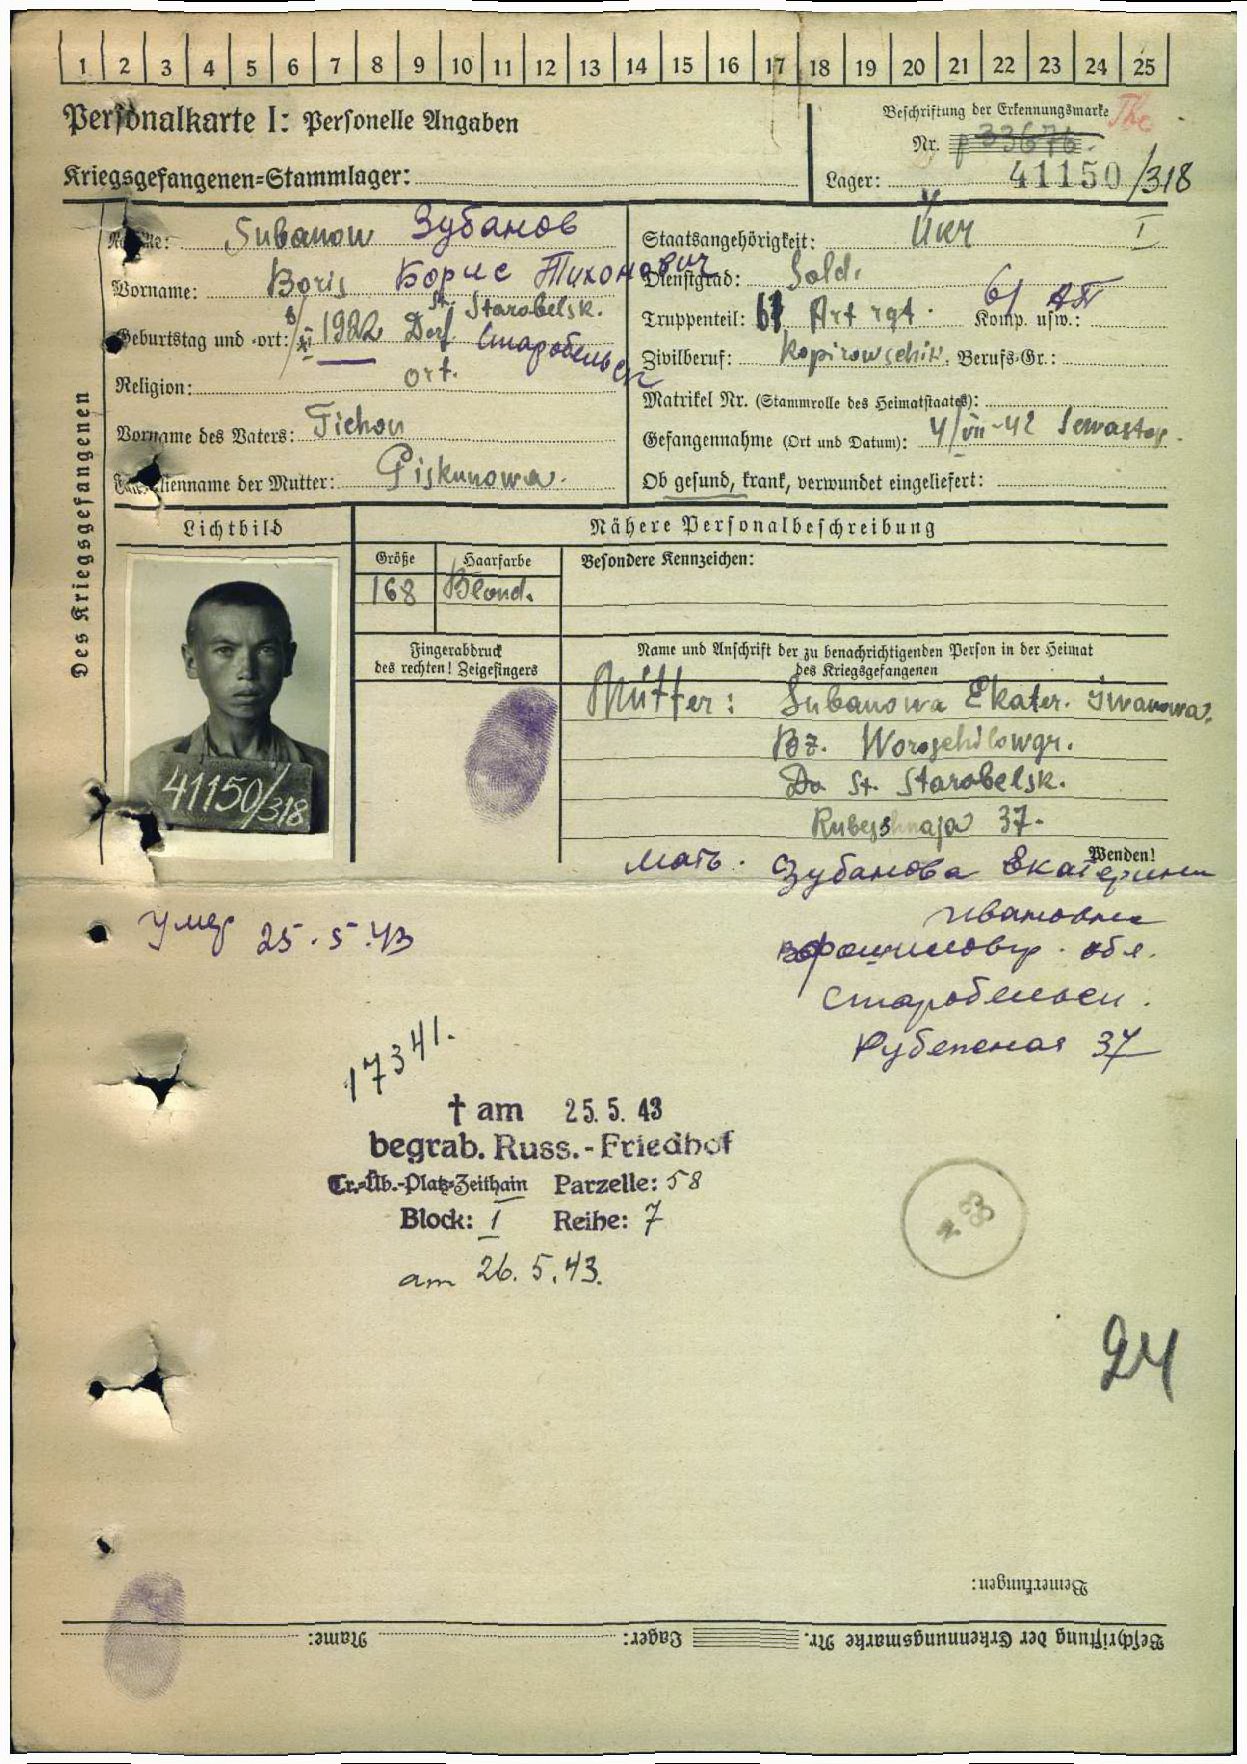 1 2 3 4 5 6 7 8 9 10 11 12 13 14 15 16 17 18 19 20 21 22 23 24 25
Personalkarte I: Personelle Angaben
Beschriftung der Erkennungsmarke
Nr. 33676
Kriegsgefangenen-Stammlager:
Lager: 41150/318
Des Kriegsgefangenen
Name: Subanow Зубанов
Vorname: Boris Борис Тихонович
St. Starobelsk.
Geburtstag und -ort: 8/XI 1922 Dorf Старобельск
ort.
Religion:
Vorname des Vaters: Tichon
Familienname der Mutter: Piskunowa.
Staatsangehörigkeit: Ukr I
Dienstgrad: Sold.
61 АП
Truppenteil: 61 Art rgt. Komp. usw.:
Zivilberuf: Kopirowschik. Berufs-Gr.:
Matrikel Nr. (Stammrolle des Heimatstaates):
Gefangennahme (Ort und Datum): 4/VII-42 Sewastop.
Ob gesund, krank, verwundet eingeliefert:
Lichtbild
41150/318
Nähere Personalbeschreibung
Größe Haarfarbe Besondere Kennzeichen:
168 Blond.
Fingerabdruck
des rechten! Zeigefingers
Name und Anschrift der zu benachrichtigenden Person in der Heimat
des Kriegsgefangenen
Mutter: Subanowa Ekater. Iwanowa.
Bz. Woroschilowgr.
St. Starobelsk.
Rubeschnaja 37.
Wenden!
мать. Зубанова Екатерина
Ивановна
Ворошиловгр. обл.
Старобельск.
Рубежная 37
Умер 25.5.43
17341.
† am 25.5.43
begrab. Russ.-Friedhof
Tr.-Üb.-Platz-Zeithain Parzelle: 58
Block: I Reihe: 7
am 26.5.43.
24
Bemerkungen:
Beschriftung der Erkennungsmarke Nr. Lager: Name: